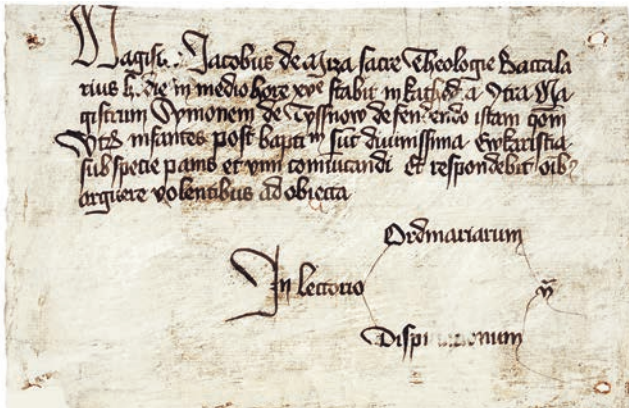 Magistr. Jacobus de Miza sacre Theologie Baccala
rius h. die in medio hore xve stabit in kathed. a 9tra Ma
gistrum Symonem de Tyssnow defendendo istam
infantes post sūt divinissima Ewkaristia
sub specie panis et vini et respondebit oībꝫ
arguere volentibus ad obiecta
Ordinariarum
In lectorio
Disp onum